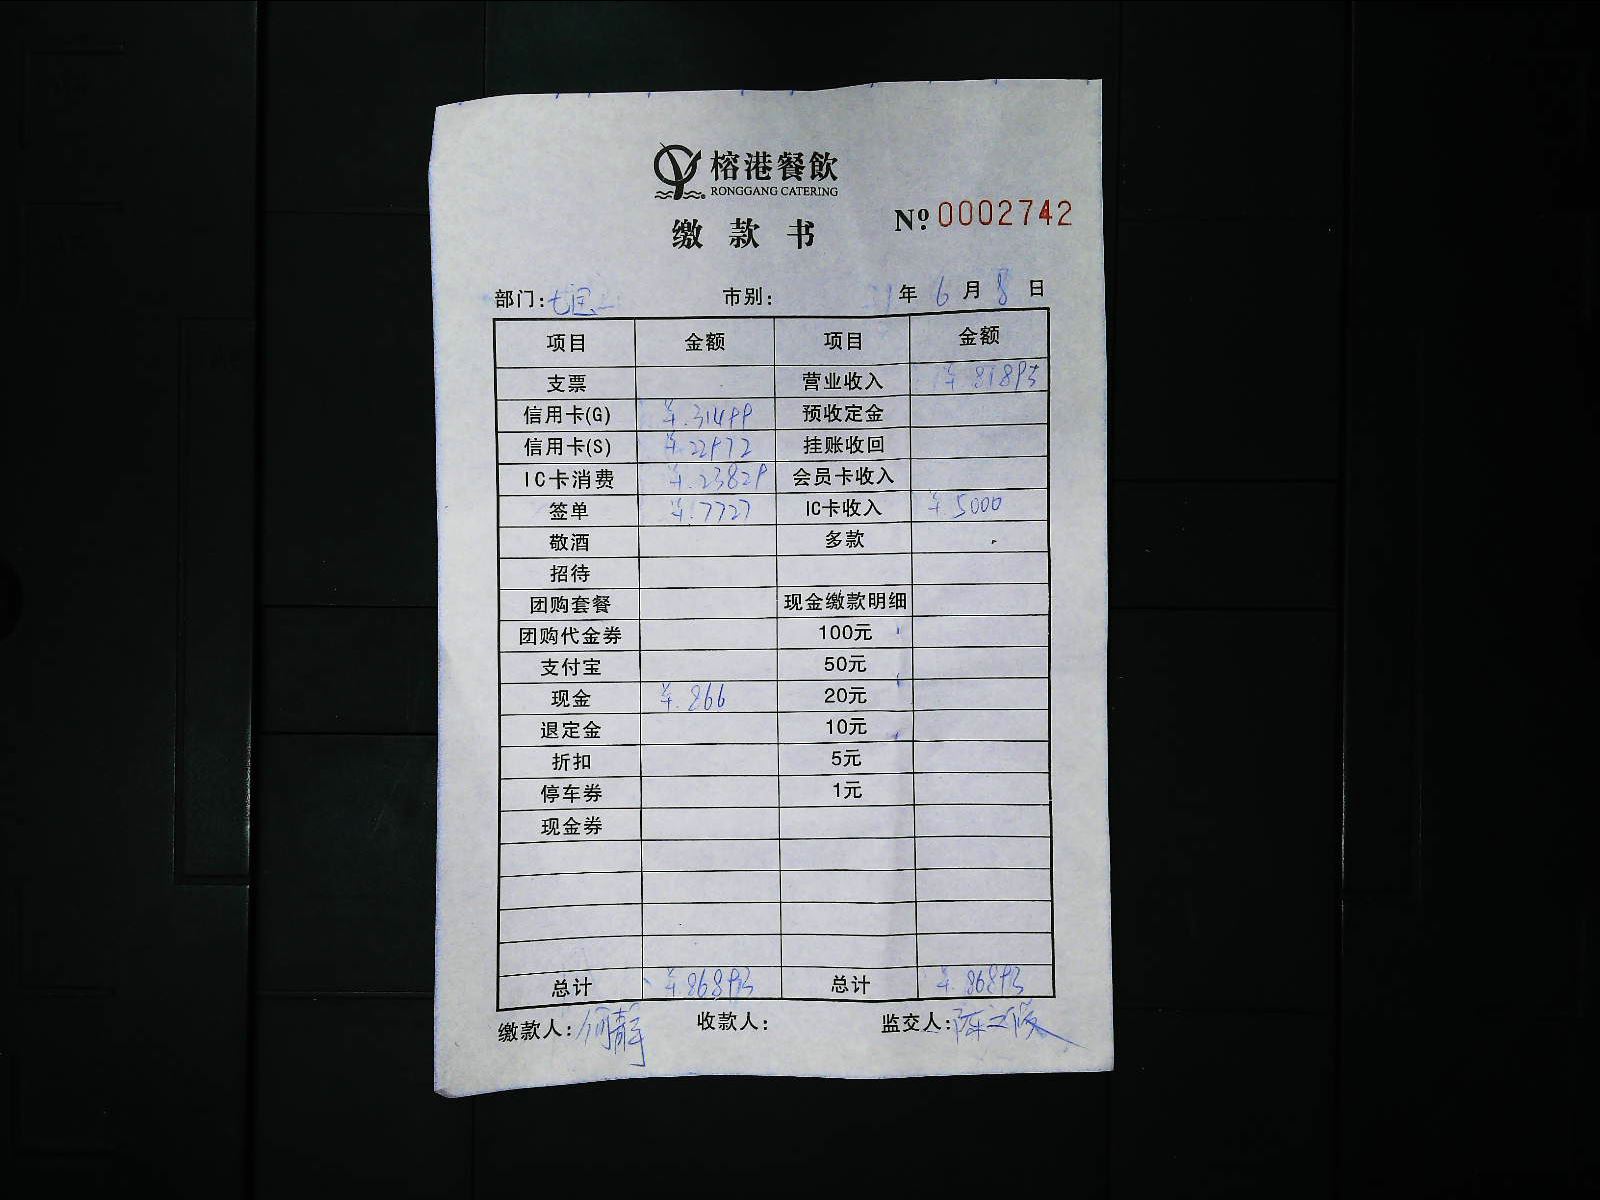 榕港餐飲
RONGGANG CATERING
缴款书
Nº 0002742
部门:七宝 市别: 年 6 月 8 日
项目 金额 项目 金额
支票 营业收入 ¥81893
信用卡(G) ¥.31499 预收定金
信用卡(S) ¥.22972 挂账收回
IC卡消费 ¥.23829 会员卡收入
签单 ¥.7727 IC卡收入 ¥5000
敬酒 多款
招待
团购套餐 现金缴款明细
团购代金券 100元
支付宝 50元
现金 ¥.866 20元
退定金 10元
折扣 5元
停车券 1元
现金券
总计 ¥86893 总计 ¥.86893
缴款人:何静 收款人: 监交人:陈